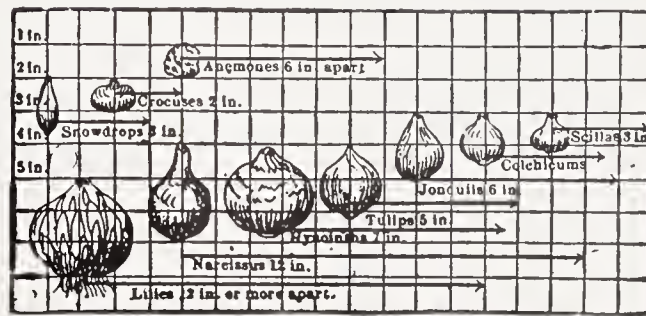 1 in.
2 in.
3 in.
4 in.
5 in.
Anemones 6 in. apart
Crocuses 2 in.
Snowdrops 3 in.
Scillas 3 in
Colchicums
Jonquils 6 in
Tulips 5 in.
Hyacinths 7 in.
Narcissus 12 in.
Lilies 12 in. or more apart.